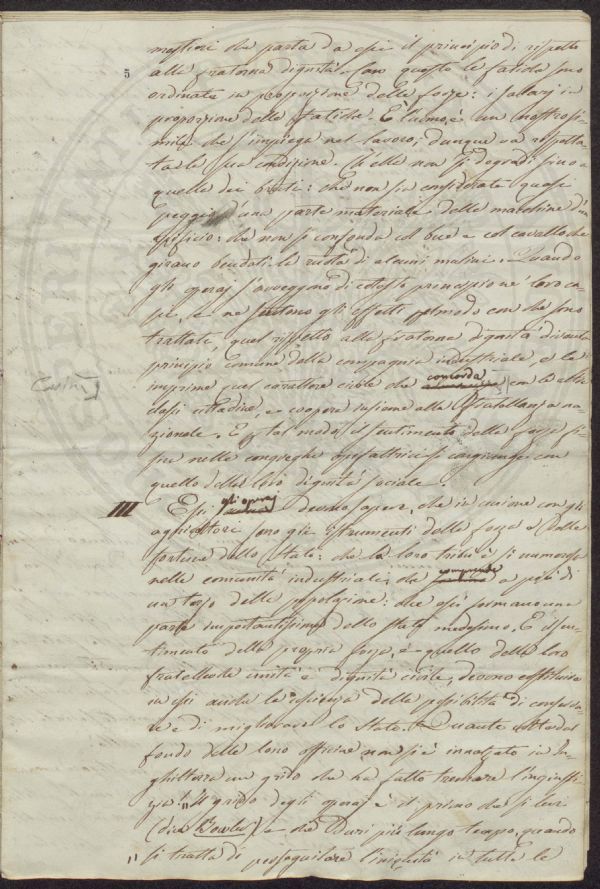 5
mestieri che parta da essi il principio di rispetto
alla fraterna dignità. Con questo le fatiche sono
ordinate in proporzione delle forze: i salarj in
proporzione delle fatiche. È l'uomo, è un nostro si-
mile che s'impiega nel lavoro; dunque va rispetta-
ta la sua condizione. Ch'ella non si degradi sino a
quella dei bruti: che non sia considerata quasi
peggio d'una parte materiale delle macchine d'un
opificio: che non si confonda col bue e col cavallo che
girano bendati la ruota di alcuni mulini. Quando
gli operaj s'avveggono di cotesto principio ne' loro ca-
pi, e ne sentono gli effetti nel modo con che sono
trattati, quel rispetto alla fraterna dignità diventa
principio comune della compagnia industriale, e le
imprime quel carattere civile che concorda con le altre
classi cittadine, e coopera insieme alla fratellanza na-
zionale. E in tal modo il sentimento delle forze fi-
siche nelle congreghe si congiunge con
quello della loro dignità sociale.
III Essi gli operaj denno sapere, che in unione con gli
agricoltori sono gli strumenti della forza e delle
fortune dello Stato: che la loro tribù è sì numerosa
nelle comunità industriali, che comprende a più di
un terzo della popolazione: che essi formano una
parte importantissima dello stato medesimo. E il sen-
timento della propria forza, e quello della loro
fratellevole unità e dignità civile, devono costituire
in essi anche la coscienza della possibilità di conserva-
re e di migliorare lo Stato. Quante volte dal
fondo delle loro officine non si è innalzato in In-
ghilterra un grido che ha fatto tremare l'ingiusti-
zia! "Il grido degli operaj è il primo che si levi
(dice Bowley) e che duri più lungo tempo, quando
" si tratta di perseguitare l'iniquità in tutte le